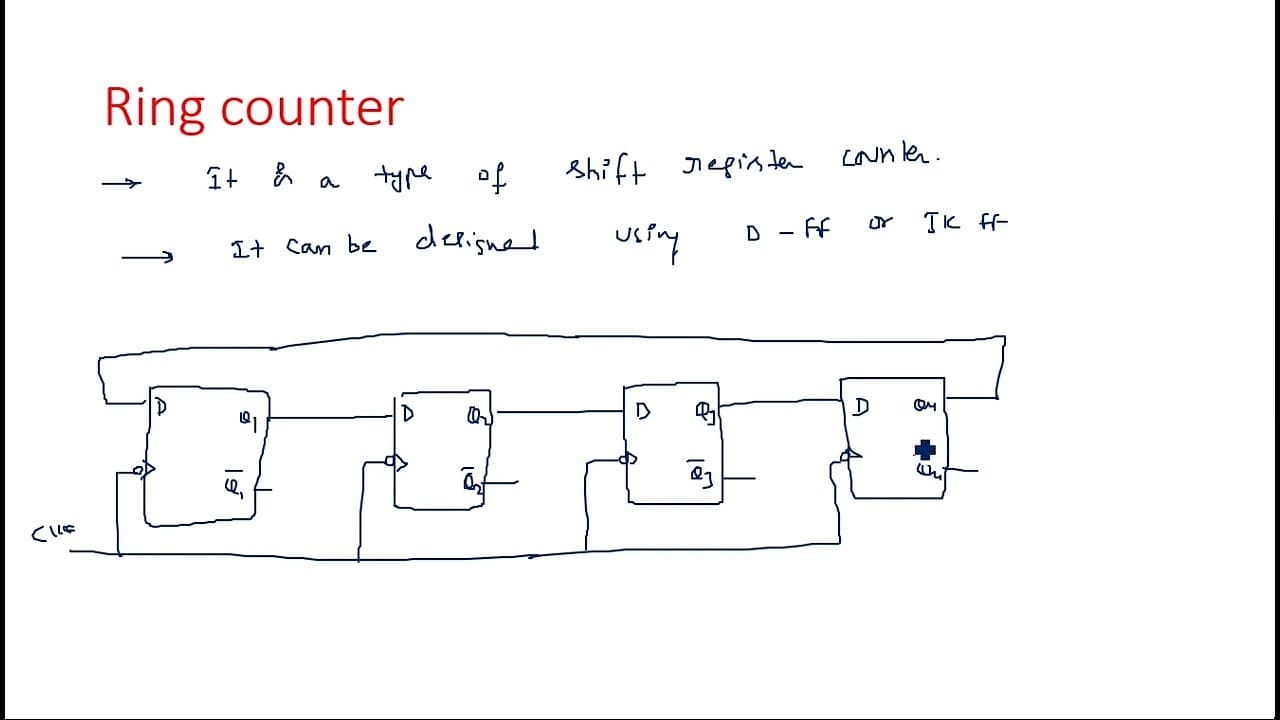 Ring counter
→ It is a type of shift register counter.
→ It can be designed using D-ff or JK ff
D Q1 D Q2 D Q3 D Q4
Q̅1 Q̅2 Q̅3 Q4
Clk